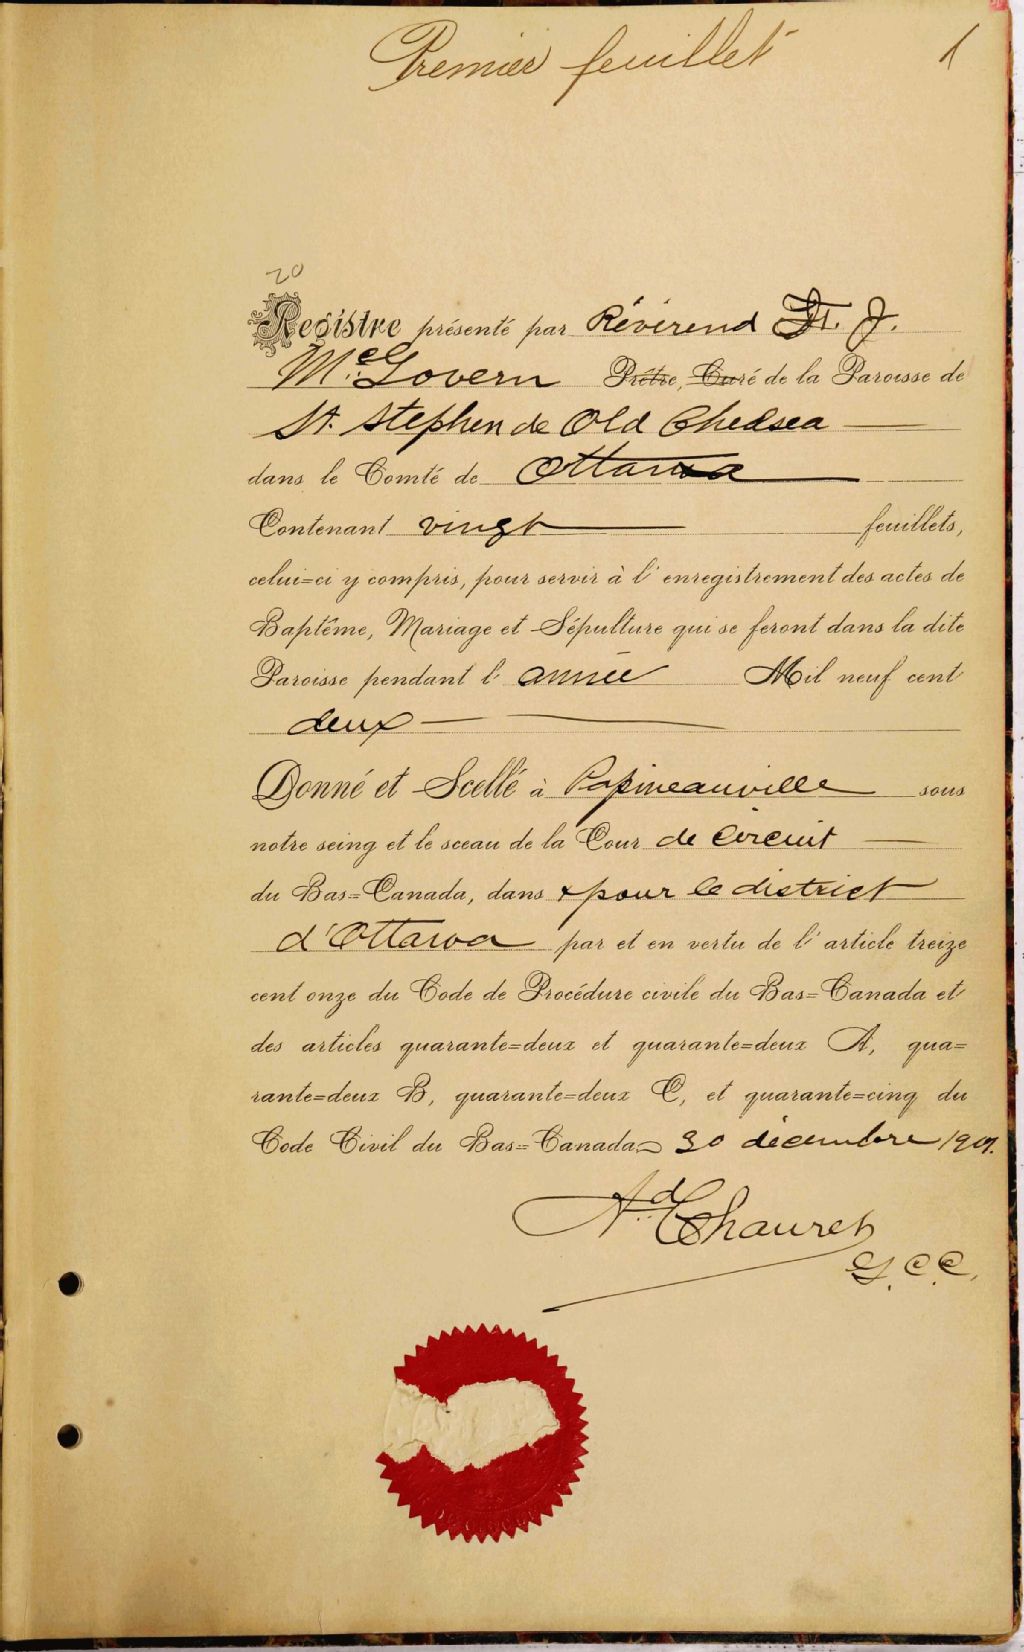 Premier feuillet 1
20
Registre présenté par Révérend J.
McGovern Prêtre, Curé de la Paroisse de
St. Stephen de Old Chelsea
dans le Comté de Ottawa
Contenant vingt feuillets,
celui=ci y compris, pour servir à l'enregistrement des actes de
Baptême, Mariage et Sépulture qui se feront dans la dite
Paroisse pendant l'année Mil neuf cent
deux
Donné et Scellé à Papineauville sous
notre seing et le sceau de la Cour de Circuit
du Bas=Canada, dans & pour le district
d'Ottawa par et en vertu de l'article treize
cent onze du Code de Procédure civile du Bas=Canada et
des articles quarante=deux et quarante=deux A, qua=
rante=deux B, quarante=deux C, et quarante=cinq du
Code Civil du Bas=Canada 30 décembre 1901.
Ad Chauret
G.C.C.